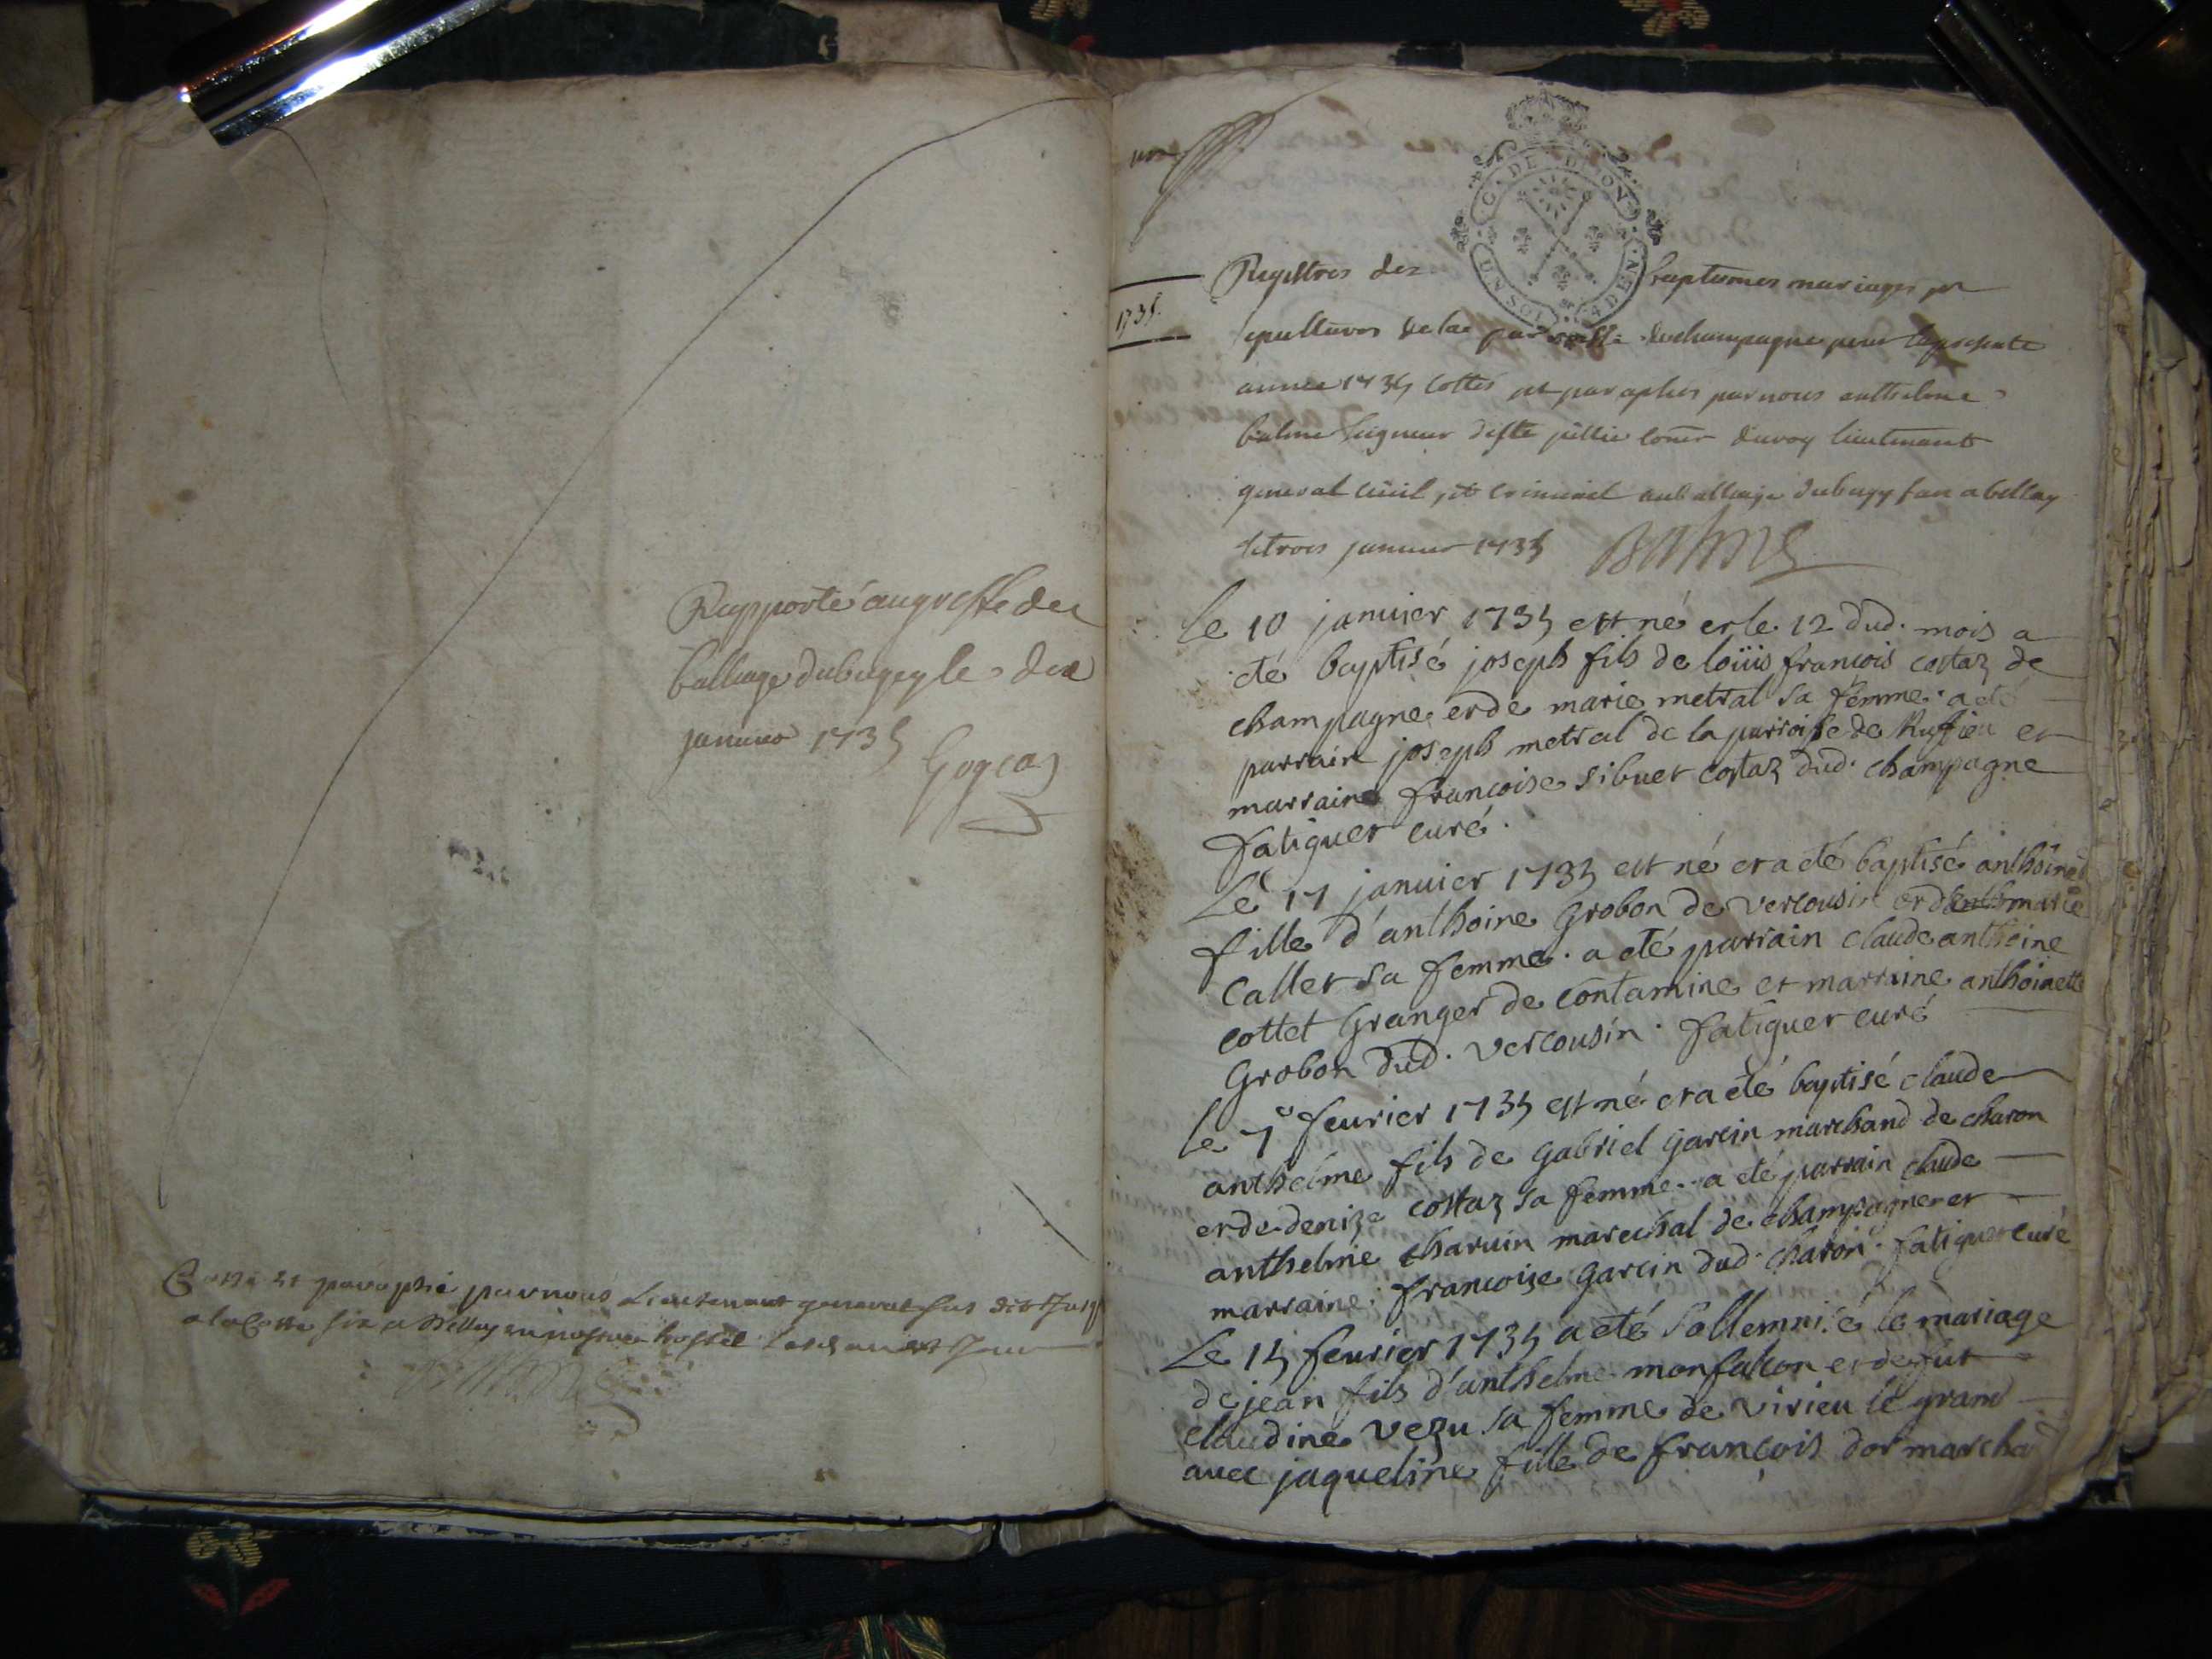 Rapporté au greffe du
balliage dubugey le dix
janvier 1735
Cotté et paraphé par nous Lieutenant general sus dit jusq
a la Cotte six a Belley en nostre hostel
1735.
C. DE DIJON
UN SOL 4 DEN.
Registres des baptemes mariages et
sepultures de la parroisse de champagne pour la presente
année 1735 cottés et paraphés par nous anthelme
balme Seigneur de Ste jullie coner du roy lieutenant
general civil et criminel au balliage du bugey fait a belley
le trois janvier 1735 Balme
Le 10 janvier 1735 est né et le 12 dud. mois a
eté baptisé joseph fils de loüis françois costaz de
champagne et de marie metral sa femme. a eté
parrain joseph metral de la parroisse de Ruffieu et
marraine francoise sibuet costaz dud. champagne
fatiguet curé.
Le 17 janvier 1735 est né et a eté baptisé anthoinet
fille d'anthoine Grobon de vercousin et de marie
Callet sa femme. a eté parrain claude anthoine
cottet Granger de contamine et marraine anthoinette
Grobon dud. vercousin. fatiguet curé
le 7e feurier 1735 est né et a eté baptisé claude
anthelme fils de gabriel garcin marchand de charon
et de denize costaz sa femme. a eté parrain claude
anthelme charuin marechal de champagne et
marraine francoise garcin dud. charon. fatiguet curé
Le 15 feurier 1735 a eté sollemnisé le mariage
de jean fils d'anthelme monfalcon et de fut
claudine vezu sa femme de virieu le grand
auec jaqueline fille de françois dor marcha